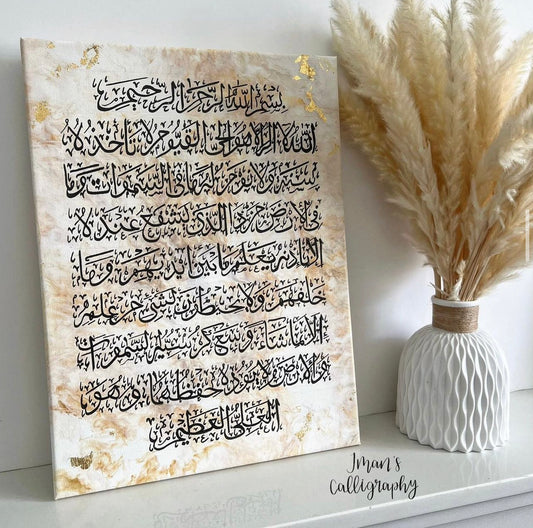 بِسْمِ اللَّهِ الرَّحْمَٰنِ الرَّحِيمِ
اللَّهُ لَا إِلَٰهَ إِلَّا هُوَ الْحَيُّ الْقَيُّومُ لَا تَأْخُذُهُ
سِنَةٌ وَلَا نَوْمٌ لَهُ مَا فِي السَّمَٰوَاتِ وَمَا
فِي الْأَرْضِ مَنْ ذَا الَّذِي يَشْفَعُ عِنْدَهُ
إِلَّا بِإِذْنِهِ يَعْلَمُ مَا بَيْنَ أَيْدِيهِمْ وَمَا
خَلْفَهُمْ وَلَا يُحِيطُونَ بِشَيْءٍ مِنْ عِلْمِهِ
إِلَّا بِمَا شَاءَ وَسِعَ كُرْسِيُّهُ السَّمَٰوَاتِ
وَالْأَرْضَ وَلَا يَئُودُهُ حِفْظُهُمَا وَهُوَ
الْعَلِيُّ الْعَظِيمُ
Iman's
Calligraphy